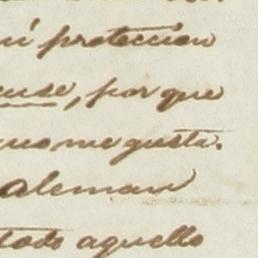 mi proteccion
euse, por que
no me gusta.
aleman
todo aquello